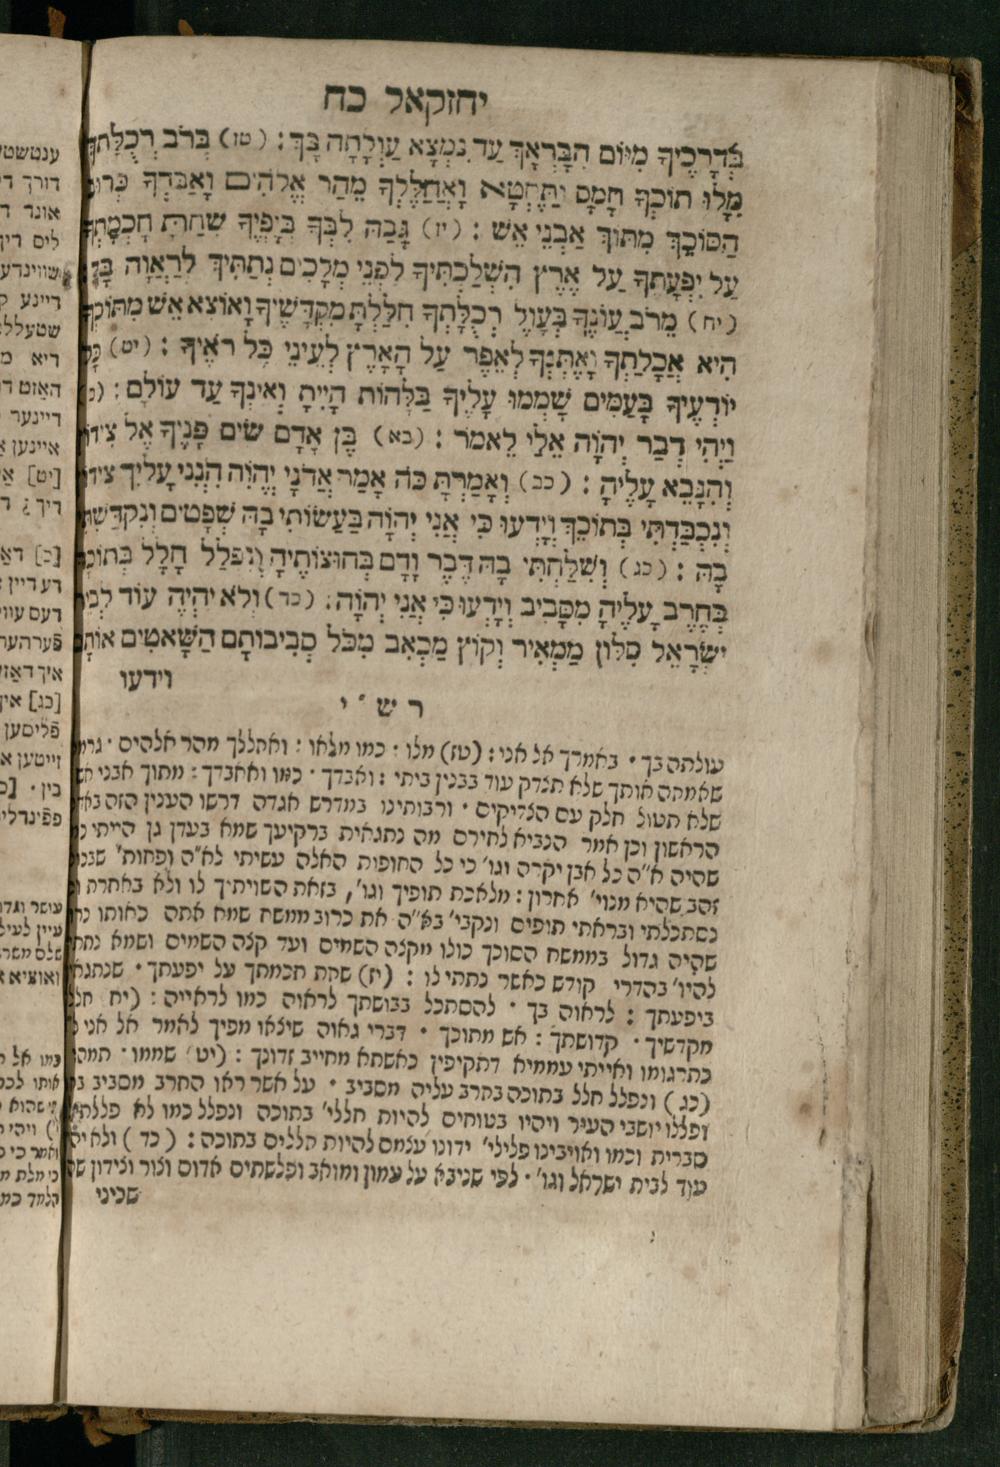 יחזקאל כח
בִּדְרָכֶיךָ מִיּוֹם הִבָּרְאָךְ עַד נִמְצָא עַוְלָתָה בָּךְ : (טז) בְּרֹב רְכֻלָּתְךָ
מָלוּ תוֹכְךָ חָמָס וַתֶּחֱטָא וָאֲחַלֶּלְךָ מֵהַר אֱלֹהִים וָאַבֶּדְךָ כְּרוּב
הַסּוֹכֵךְ מִתּוֹךְ אַבְנֵי אֵשׁ : (יז) גָּבַהּ לִבְּךָ בְּיָפְיֶךָ שִׁחַתָּ חָכְמָתְךָ
עַל יִפְעָתֶךָ עַל אֶרֶץ הִשְׁלַכְתִּיךָ לִפְנֵי מְלָכִים נְתַתִּיךָ לְרַאֲוָה בָךְ
(יח) מֵרֹב עֲוֹנֶיךָ בְּעָוֶל רְכֻלָּתְךָ חִלַּלְתָּ מִקְדָּשֶׁיךָ וָאוֹצִא אֵשׁ מִתּוֹכְךָ
הִיא אֲכָלַתְךָ וָאֶתֶּנְךָ לְאֵפֶר עַל הָאָרֶץ לְעֵינֵי כָּל רֹאֶיךָ : (יט) כָּל
יוֹדְעֶיךָ בָּעַמִּים שָׁמְמוּ עָלֶיךָ בַּלָּהוֹת הָיִיתָ וְאֵינְךָ עַד עוֹלָם :
וַיְהִי דְבַר יְהוָֹה אֵלַי לֵאמֹר : (כא) בֶּן אָדָם שִׂים פָּנֶיךָ אֶל צִידוֹן
וְהִנָּבֵא עָלֶיהָ : (כב) וְאָמַרְתָּ כֹּה אָמַר אֲדֹנָי יְהוִֹה הִנְנִי עָלַיִךְ צִידוֹן
וְנִכְבַּדְתִּי בְּתוֹכֵךְ וְיָדְעוּ כִּי אֲנִי יְהוָֹה בַּעֲשׂוֹתִי בָהּ שְׁפָטִים וְנִקְדַּשְׁתִּי
בָהּ : (כג) וְשִׁלַּחְתִּי בָהּ דֶּבֶר וָדָם בְּחוּצוֹתֶיהָ וְנִפְלַל חָלָל בְּתוֹכָהּ
בְּחֶרֶב עָלֶיהָ מִסָּבִיב וְיָדְעוּ כִּי אֲנִי יְהוָֹה : (כד) וְלֹא יִהְיֶה עוֹד לְבֵית
יִשְׂרָאֵל סִלּוֹן מַמְאִיר וְקוֹץ מַכְאִב מִכֹּל סְבִיבוֹתָם הַשָּׁאטִים אוֹתָם
וידעו
רש״י
עולתה בך · באמרך אל אני : (טז) מלו · כמו מלאו : ואחללך מהר אלהים ·
שאמתה אותך שלא תצדק עוד בבנין ביתי : ואבדך · כמו ואאבדך : מתוך אבני אש
שלא תטול חלק עם הצדיקים · ורבותינו במדרש אגדה דרשו הענין הזה
הראשון וכן אמר הנביא לחירם מה נתגאית ברקיעך שמא בעדן גן היית
שהיה א״ה כל אבן יקרה וגו' כי כל החופות האלה עשיתי לא״ה ופחות'
זהב שהיא מנוי' אחרון : מלאכת תופיך וגו', בזאת השויתיך לו ולא באחרת
נסתכלתי ובראתי תופים ונקבי' בא״ה את כרוב ממשח שמא אתה כאותו
שהיה גדול בממשח הסוכך כולו מקצה השמים ועד קצה השמים ושמא נתתי
להיו' בהדרי קודש כאשר נתתי לו : (יז) שחת חכמתך על יפעתך · שנתגאת
ביפעתך : לראוה בך · להסתכל בבושתך לראוה כמו לראייה : (יח
מקדשיך · קדושתך : אש מתוכך · דברי גאוה שיצאו מפיך לאמר אל אני
כתרגומו ואייתי עממיא דתקיפין כאשתא מחייב זדונך : (יט) שממו · תמהו
(כג) ונפלל חלל בתוכה בחרב עליה מסביב · על אשר ראו החרב מסביב
ופללו יושבי העיר ויהיו בטוחים להיות חללי' בתוכה ונפלל כמו לא פללתי
סברית וכמו ואויבינו פלילי' ידונו עצמם להיות חללים בתוכה : (כד) ולא
עוד לבית ישראל וגו' · לפי שניבא על עמון ומואב ופלשתים אדום וצור וצידון
שכיני